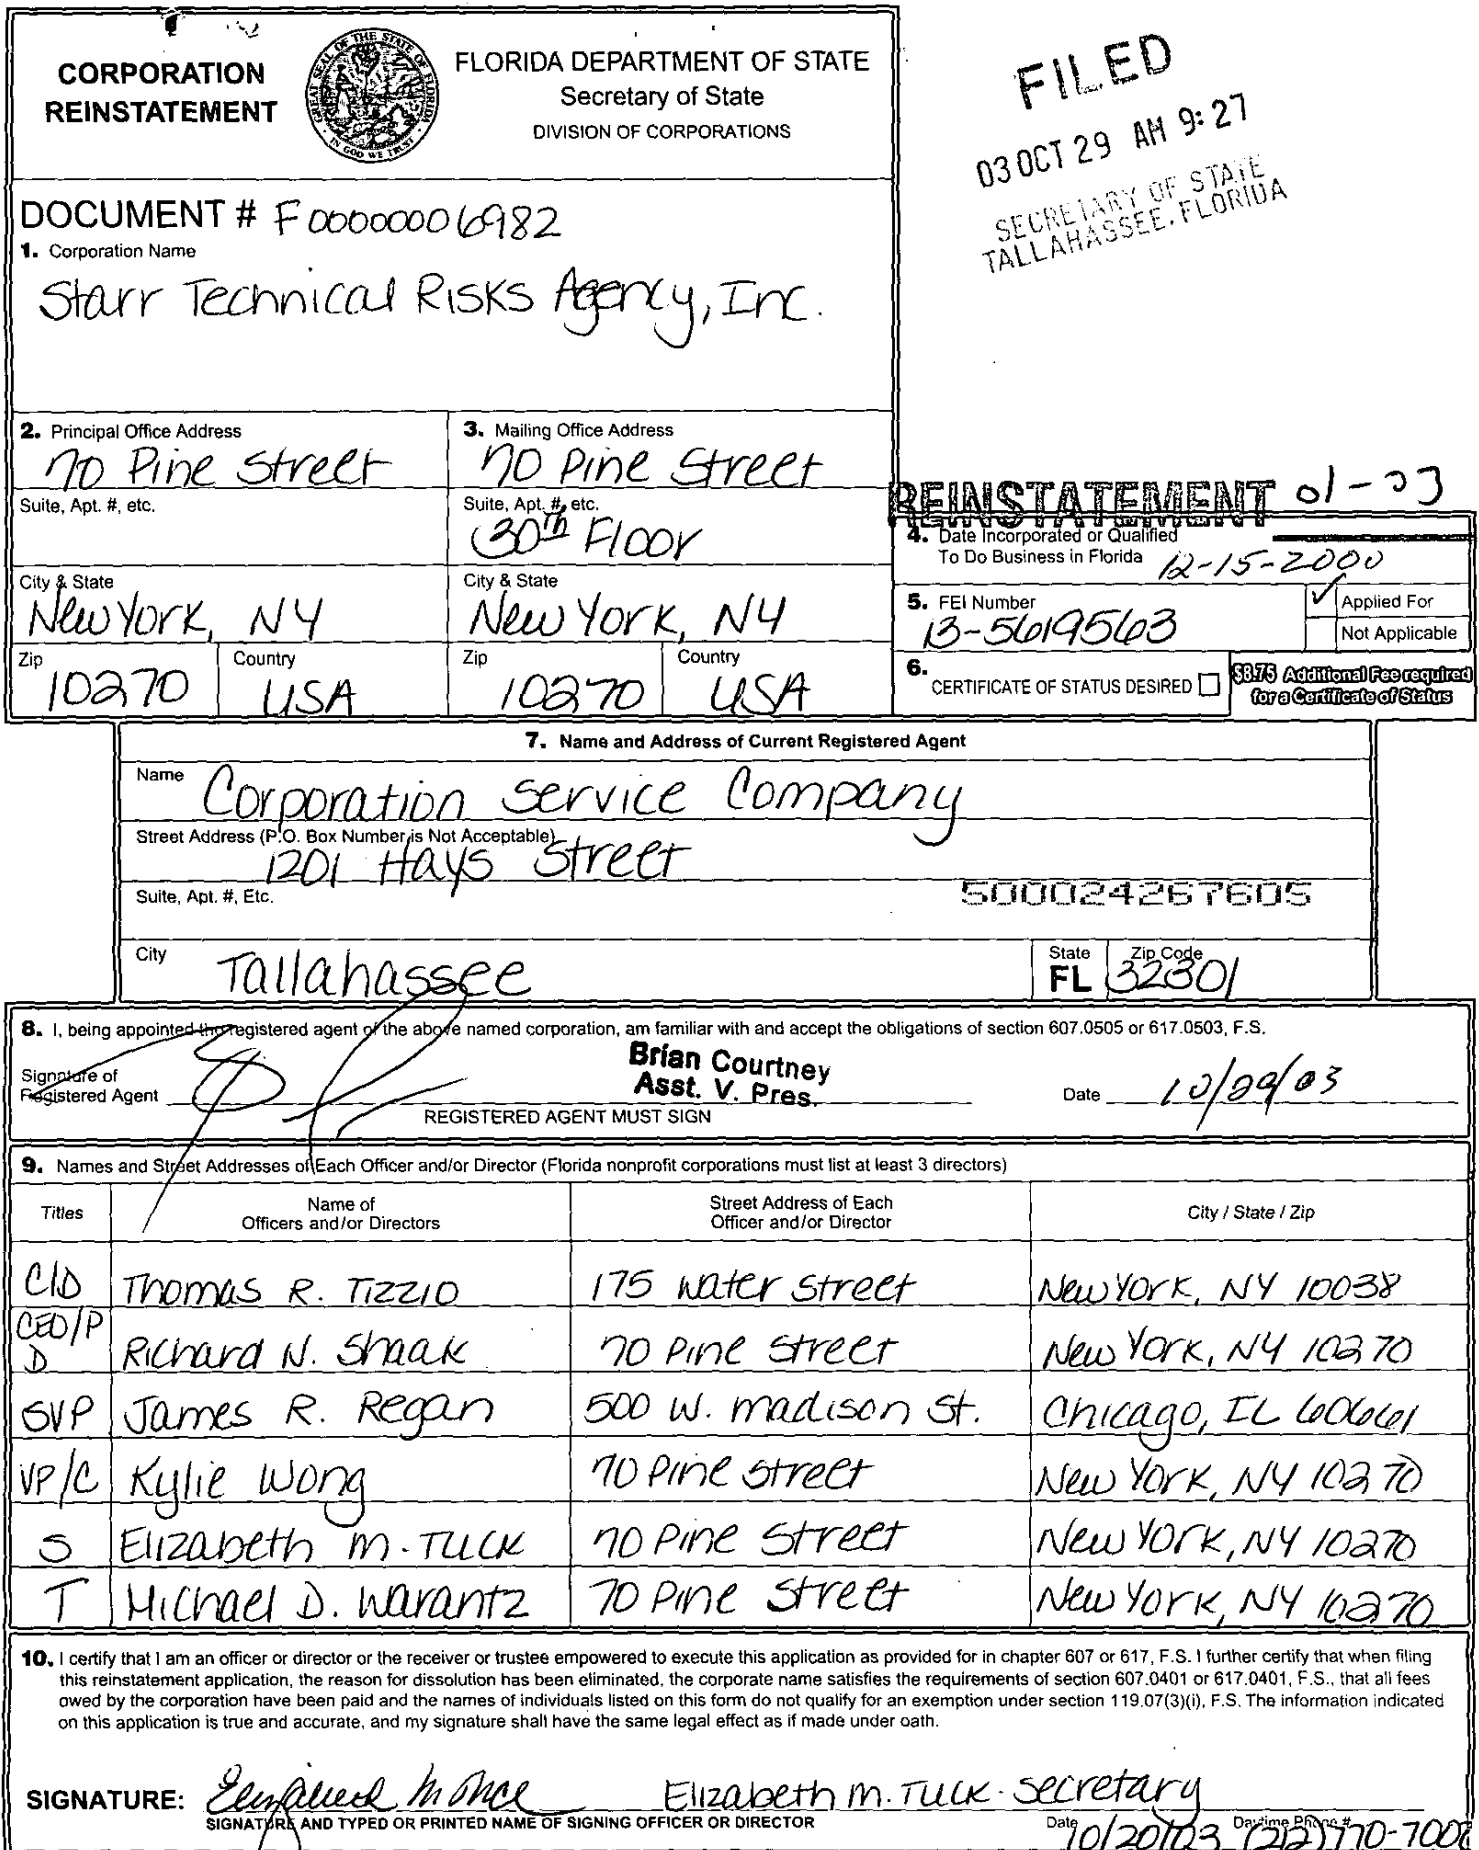 CORPORATION
REINSTATEMENT
GREAT SEAL OF THE STATE OF FLORIDA
IN GOD WE TRUST
FLORIDA DEPARTMENT OF STATE
Secretary of State
DIVISION OF CORPORATIONS
FILED
03 OCT 29 AM 9:27
SECRETARY OF STATE
TALLAHASSEE, FLORIDA
DOCUMENT # F00000006982
1. Corporation Name
Starr Technical Risks Agency, Inc.
2. Principal Office Address
70 Pine Street
3. Mailing Office Address
70 Pine Street
Suite, Apt. #, etc.
Suite, Apt. #, etc.
30th Floor
REINSTATEMENT 01-03
4. Date Incorporated or Qualified
To Do Business in Florida 12-15-2000
City & State
New York, NY
City & State
New York, NY
5. FEI Number
13-5619563
✓ Applied For
Not Applicable
Zip
10270
Country
USA
Zip
10270
Country
USA
6. CERTIFICATE OF STATUS DESIRED
$8.75 Additional Fee required
for a Certificate of Status
7. Name and Address of Current Registered Agent
Name Corporation Service Company
Street Address (P.O. Box Number is Not Acceptable)
1201 Hays Street
Suite, Apt. #, Etc.
500024267605
City Tallahassee
State
FL
Zip Code
32301
8. I, being appointed the registered agent of the above named corporation, am familiar with and accept the obligations of section 607.0505 or 617.0503, F.S.
Brian Courtney
Asst. V. Pres.
Signature of
Registered Agent
Date 10/29/03
REGISTERED AGENT MUST SIGN
9. Names and Street Addresses of Each Officer and/or Director (Florida nonprofit corporations must list at least 3 directors)
Titles
Name of
Officers and/or Directors
Street Address of Each
Officer and/or Director
City / State / Zip
C/D Thomas R. Tizzio 175 Water Street New York, NY 10038
CEO/P
D Richard N. Shaak 70 Pine Street New York, NY 10270
SVP James R. Regan 500 W. Madison St. Chicago, IL 60661
VP/C Kylie Wong 70 Pine Street New York, NY 10270
S Elizabeth M. Tuck 70 Pine Street New York, NY 10270
T Michael D. Warantz 70 Pine Street New York, NY 10270
10. I certify that I am an officer or director or the receiver or trustee empowered to execute this application as provided for in chapter 607 or 617, F.S. I further certify that when filing
this reinstatement application, the reason for dissolution has been eliminated, the corporate name satisfies the requirements of section 607.0401 or 617.0401, F.S., that all fees
owed by the corporation have been paid and the names of individuals listed on this form do not qualify for an exemption under section 119.07(3)(i), F.S. The information indicated
on this application is true and accurate, and my signature shall have the same legal effect as if made under oath.
SIGNATURE: Elizabeth M. Tuck Elizabeth M. Tuck - Secretary
SIGNATURE AND TYPED OR PRINTED NAME OF SIGNING OFFICER OR DIRECTOR
Date 10/20/03
Daytime Phone # (212) 770-7007